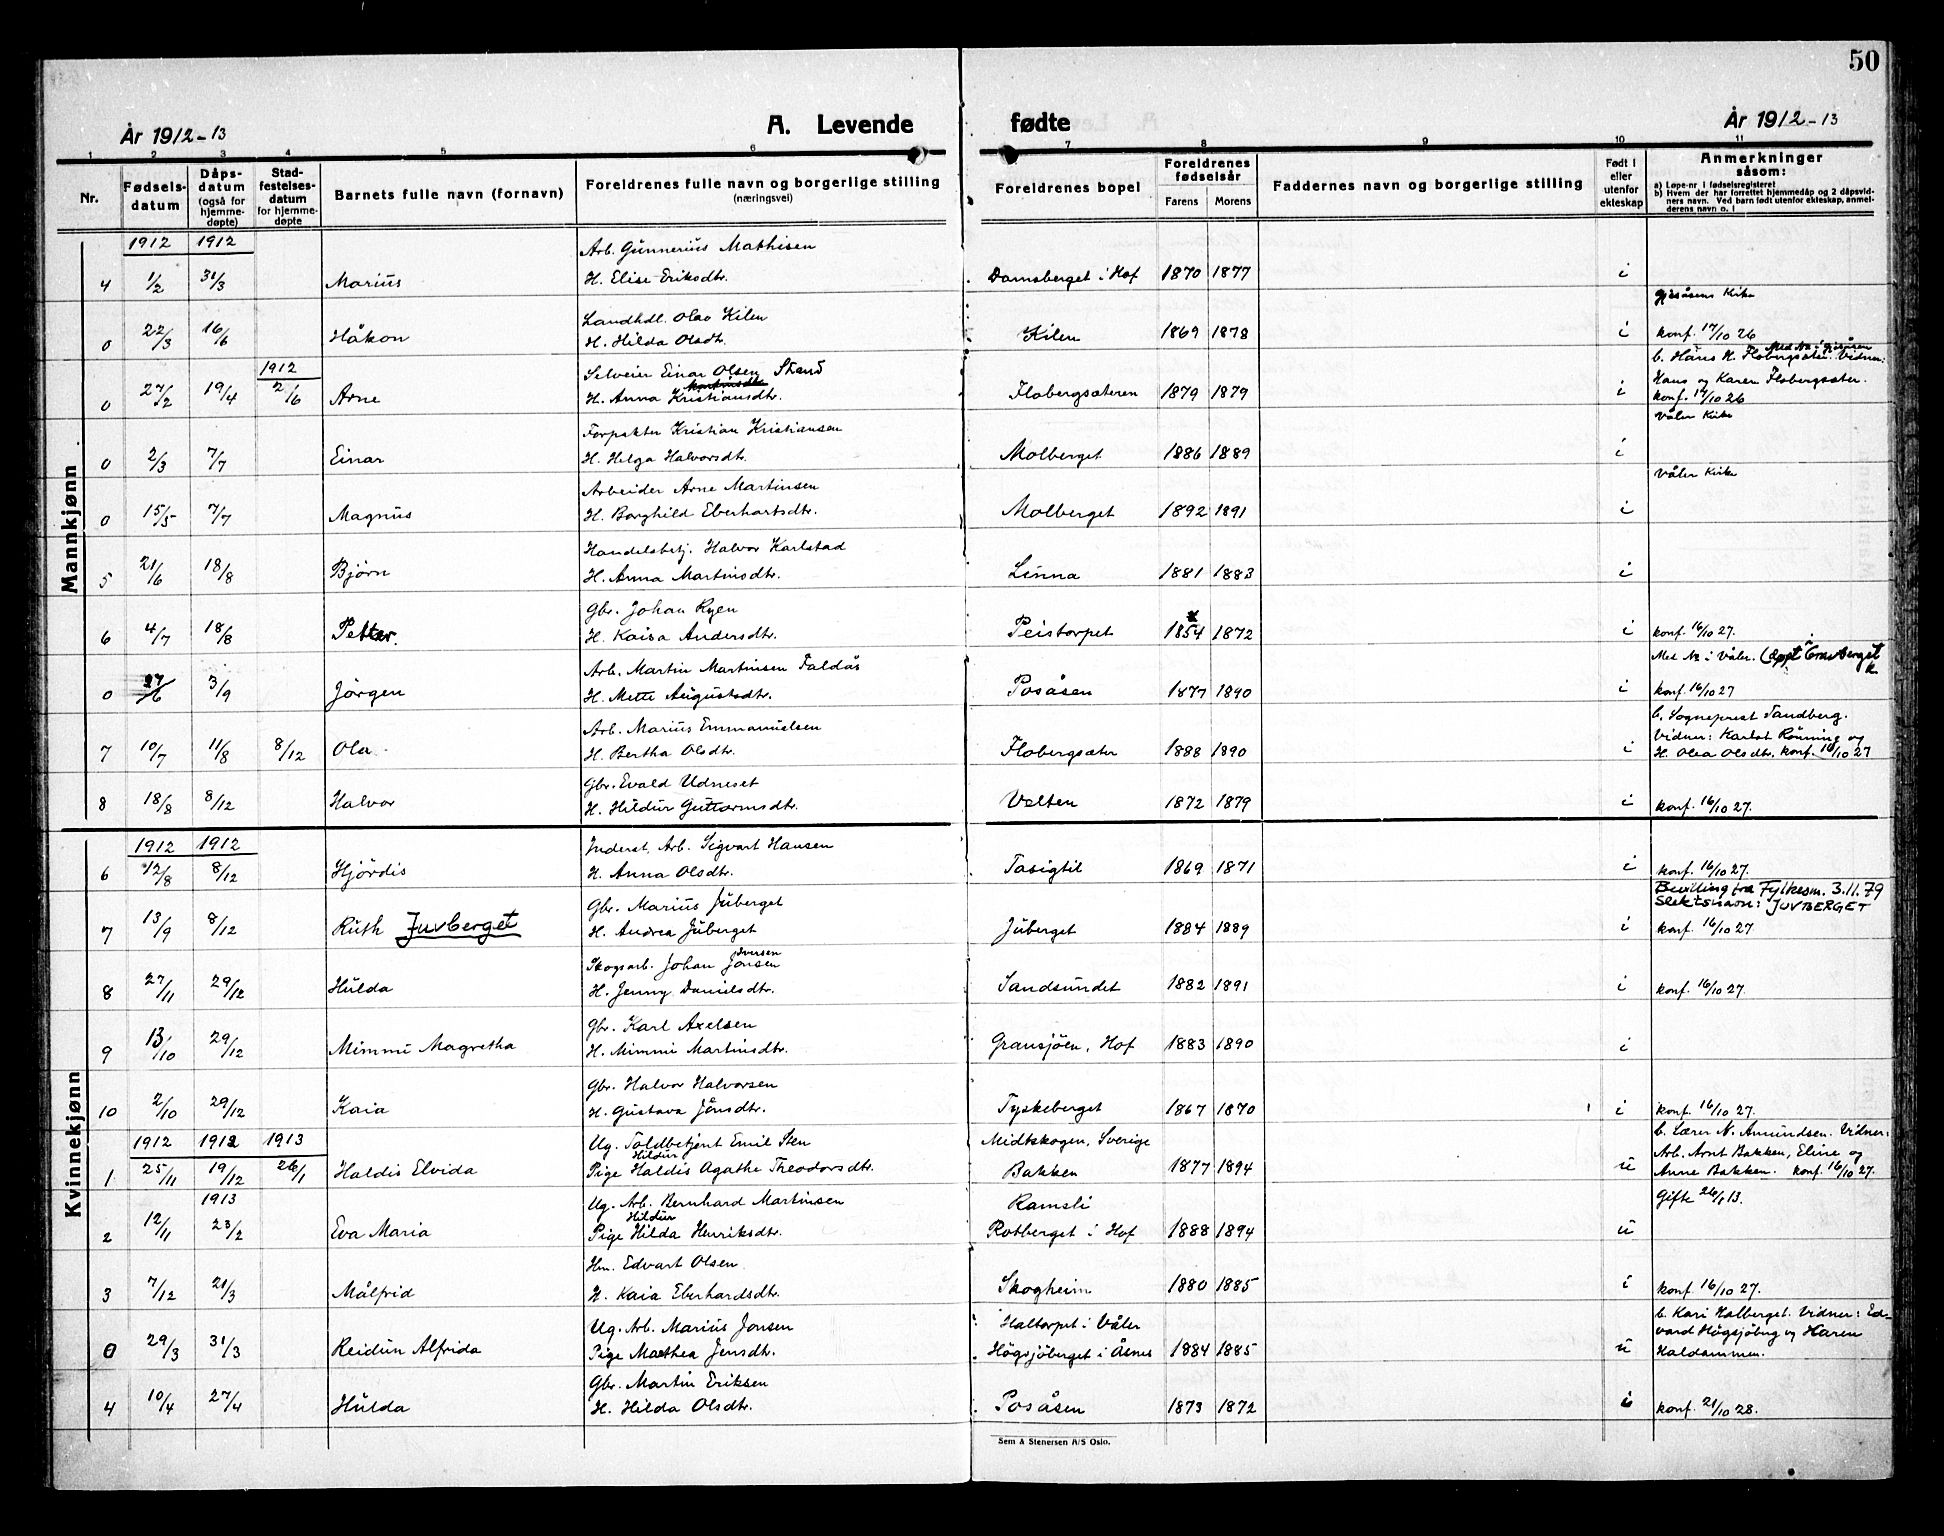 50
År 1912-13
A. Levende fødte
År 1912-13
1 2 3 4 5 6 7 8 9 10 11
Nr.
Fødselsdatum
Dåpsdatum (også for hjemmedøpte)
Stadfestelsesdatum for hjemmedøpte
Barnets fulle navn (fornavn)
Foreldrenes fulle navn og borgerlige stilling (næringsvei)
Foreldrenes bopel
Foreldrenes fødselsår
Farens Morens
Faddernes navn og borgerlige stilling
Født i eller utenfor ekteskap
Anmerkninger såsom:
a) Løpe-nr i fødselsregisteret
b) Hvem der har forrettet hjemmedåp og 2 dåpsvidners navn. Ved barn født utenfor ekteskap, anmelderens navn o. l
Mannkjønn
1912 1912 Arb. Gunnerius Mathisen
4 1/2 31/3 Marius H. Elise Eriksdtr. Damsberget i Hof 1870 1877 i
Landhdl. Olav Kilen Gjesåsens Kirke
0 22/3 16/6 Håkon H. Hilda Olsdtr. Kilen 1869 1878 i konf. 17/10 26
1912 Selveier Einar Olsen Strand b. Hans H. Flobergsæter. Vidner:
0 27/2 19/4 2/6 Arne H. Anna Kristiansdtr. Flobergsæteren 1879 1879 i Hans og Karen Flobergsæter.
konf. 17/10 26
Forpakter Kristian Kristiansen Våler Kirke
0 2/3 7/7 Einar H. Helga Halvorsdtr. Molberget 1886 1889 i
Arbeider Arne Martinsen Våler Kirke
0 15/5 7/7 Magnus H. Borghild Eberhartsdtr. Molberget 1892 1891 i
Handelsbetj. Halvor Karlstad
5 21/6 18/8 Bjørn H. Anna Martinsdtr. Linna 1881 1883 i
Gbr. Johan Ryen
6 4/7 18/8 Petter. H. Kaisa Andersdtr. Peistorpet 1854 1872 i konf. 16/10 27.
Arb. Martin Martinsen Faldås Med No i Våler. Gravberget k.
0 27/6 3/9 Jörgen H. Mette Augustsdtr. Posåsen 1877 1890 i konf. 16/10 27
Arb. Marius Emmanuelsen b. Sogneprest Sandberg.
7 10/7 11/8 8/12 Ola H. Bertha Olsdtr. Flobergsæter 1888 1890 i Vidner: Karlot Rönning og
H. Olea Olsdtr. konf. 16/10 27
Gbr. Evald Udneset
8 18/8 8/12 Halvor H. Hildur Guttormsdtr. Velten 1872 1879 i konf. 16/10 27.
Kvinnekjønn
1912 1912 Inderst, Arb. Sigvart Hansen
6 12/8 8/12 Hjördis H. Anna Olsdtr. Tasigtil 1869 1871 i konf. 16/10 27.
Gbr. Marius Juberget Bevilling fra Fylkesm. 3.11.79
Slektsnavn: JUVBERGET
7 13/9 8/12 Ruth Juvberget H. Andrea Juberget Juberget 1884 1889 i konf. 16/10 27
Iversen
Skogsarb. Johan Jonsen
8 27/11 29/12 Hulda H. Jenny Danielsdtr. Sandsundet 1882 1891 i konf. 16/10 27.
Gbr. Karl Axelsen
9 13/10 29/12 Mimmi Magretha H. Mimmi Martinsdtr. Gransjöen, Hof 1883 1890 i
Gbr. Halvor Halvorsen
10 2/10 29/12 Kaia H. Gustava Jönsdtr. Tyskeberget 1867 1870 i konf. 16/10 27.
1912 1912 1913 Ug. Toldbetjent Emil Sten Midtskogen, Sverige b. Lærer N. Amundsen. Vidner:
Hildur
1 25/11 19/12 26/1 Haldis Elvida Pige Haldis Agathe Theodorsdtr. Bakken 1877 1894 u Arb. Arnt Bakken, Eline og
Anne Bakken. konf. 16/10 27.
1913 Ug. Arb. Bernhard Martinsen Ramsli Gifte 26/1 13.
Hildur
2 12/11 23/2 Eva Maria Pige Hilda Henriksdtr. Rotberget i Hof 1888 1894 u
Hm. Edvart Olsen
3 7/12 21/3 Målfrid H. Kaia Eberhardsdtr. Skogheim 1880 1885 i konf. 16/10 27.
Ug. Arb. Marius Jonsen Haltorpet i Våler b. Kari Halberget. Vidner: Edvard Högsjöberg og Haren
0 29/3 31/3 Reidun Alfrida Pige Mathea Jensdtr. Högsjöberget i Åsnes 1884 1885 u Haldammen.
Gbr. Martin Eriksen
4 10/4 27/4 Hulda H. Hilda Olsdtr. Posåsen 1873 1872 i konf. 21/10 28.
Sem & Stenersen A/S Oslo.